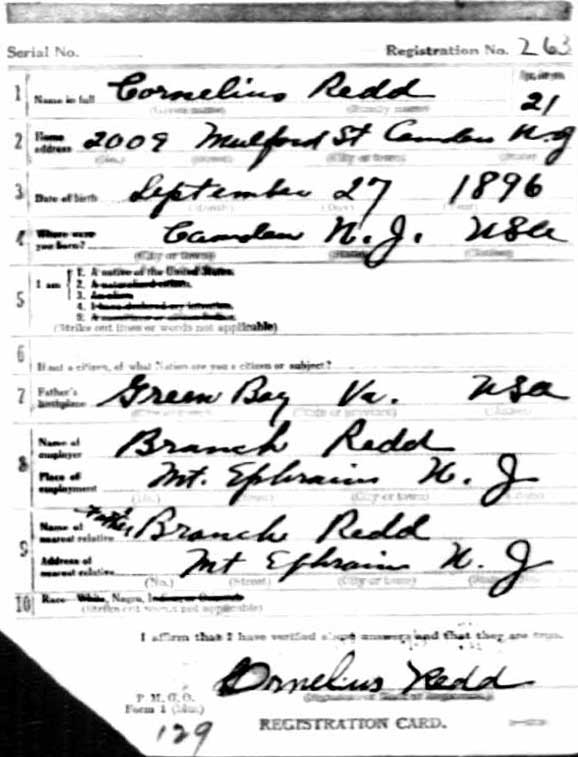 Serial No. Registration No. 263
1 Name in full Cornelius Redd 21
(Given name) (Family name) Age, in yrs.
2 Home address 2009 Mulford St Camden N.J
(No.) (Street) (City or town) (State)
3 Date of birth September 27 1896
(Month) (Day) (Year)
4 Where were you born? Camden N.J. USA
(City or town) (State) (Nation)
5 I am
1. A native of the United States.
2. A naturalized citizen.
3. An alien.
4. I have declared my intention.
5.
(Strike out lines or words not applicable)
6 If not a citizen, of what Nation are you a citizen or subject?
7 Father's birthplace Green Bay Va. USA
(City or town) (State or province) (Nation)
8 Name of employer Branch Redd
Place of employment Mt. Ephraim N. J
(No.) (Street) (City or town) (State)
9 Name of nearest relative Father Branch Redd
Address of nearest relative Mt Ephraim N. J
(No.) (Street) (City or town) (State)
10 Race—White, Negro, Indian, or Oriental
(Strike out words not applicable)
I affirm that I have verified above answers and that they are true.
Cornelius Redd
P. M. G. O.
Form 1
REGISTRATION CARD.
129